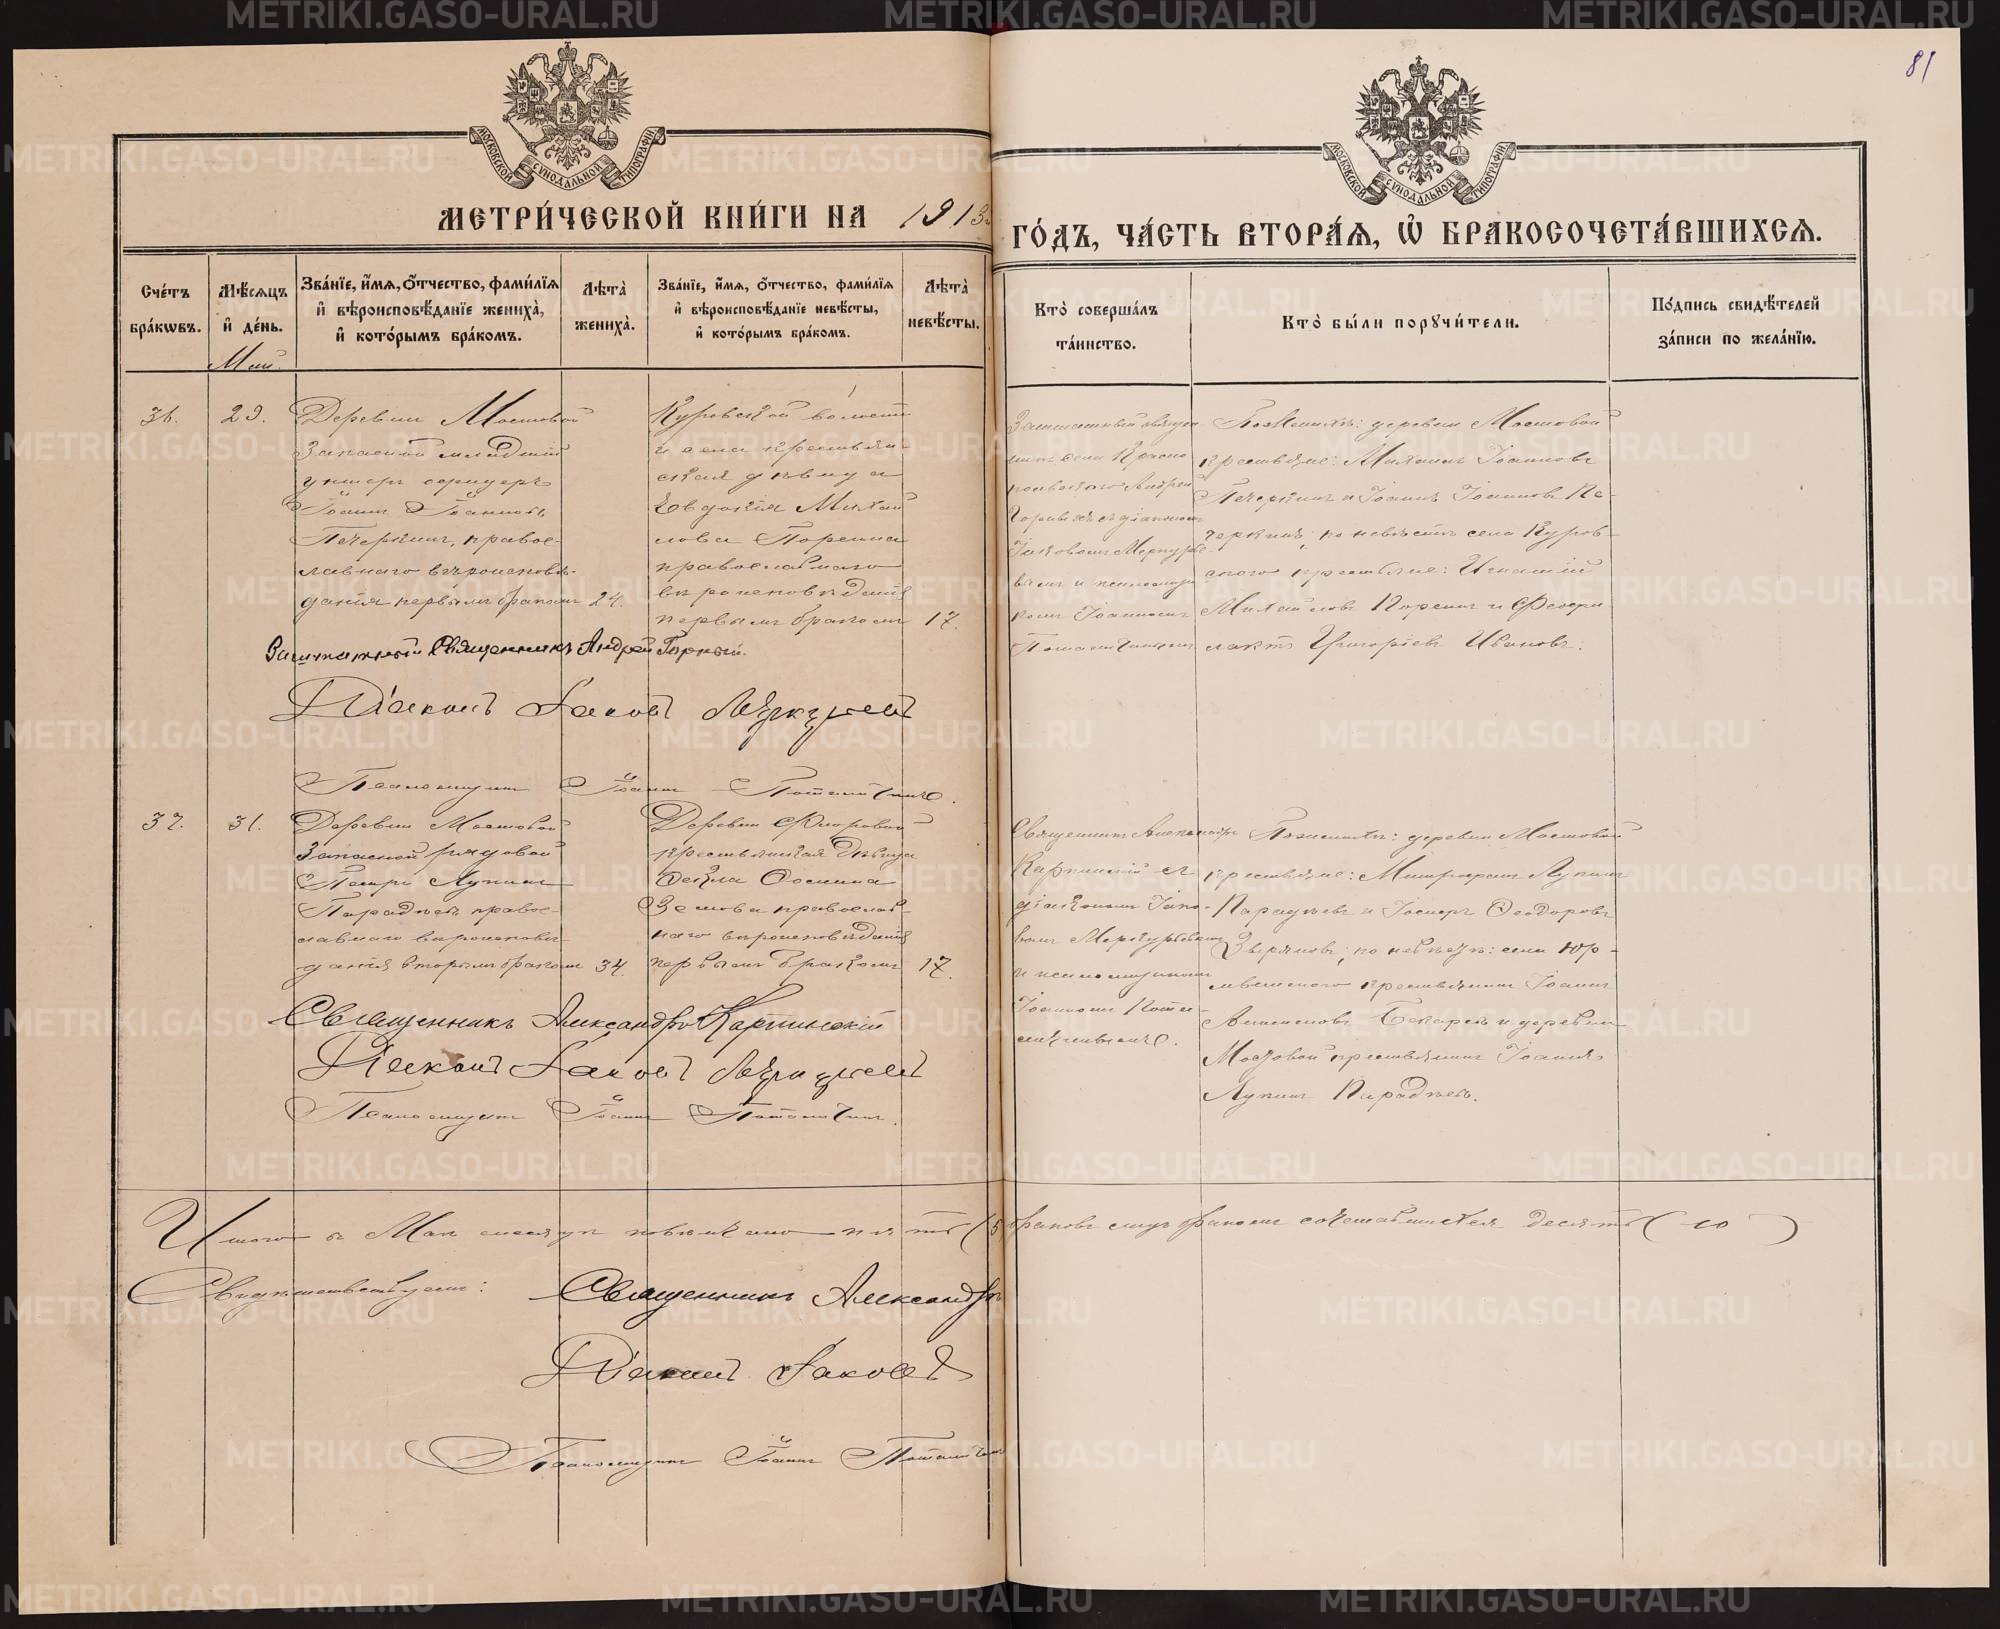 81
МОСКОВСКОЙ СѴНОДАЛЬНОЙ ТИПОГРАФІИ
МОСКОВСКОЙ СѴНОДАЛЬНОЙ ТИПОГРАФІИ
МЕТРИ́ЧЕСКОЙ КНИ́ГИ НА 1913
ГО́ДЪ, ЧА́СТЬ ВТОРА́Ѧ, Ѡ҆ БРАКОСОЧЕТА́ВШИХСѦ.
Сче́тъ бра́кѡвъ.
Мѣ́сѧцъ и҆ де́нь.
Май.
Зва́нїе, и҆́мѧ, ѻ҆́тчество, фами́лїѧ и҆ вѣроисповѣ́данїе жениха̀, и҆ кото́рымъ бра́комъ.
Лѣта̀ жениха̀.
Зва́нїе, и҆́мѧ, ѻ҆́тчество, фами́лїѧ и҆ вѣроисповѣ́данїе невѣ́сты, и҆ кото́рымъ бра́комъ.
Лѣта̀ невѣ́сты.
Кто̀ соверша́лъ та́инство.
Кто̀ бы́ли порꙋчи́тели.
По́дпись свидѣ́телей за́писи по жела́нїю.
36.
29.
Деревни Мостовой
Запасной младшій
унтеръ офицеръ
Іоаннъ Іоанновъ
Печеркинъ, право-
славнаго вѣроисповѣ-
данія первымъ бракомъ
24.
Куровской волости
и села крестьян
ская дѣвица
Евдокія Михаи
лова Порсина
православнаго
вѣроисповѣданія
первымъ бракомъ
17.
Заштатный священ
никъ села Красно
Андрей
съ діакономъ
Іаковомъ Меркурье-
вымъ и псаломщи
комъ Іоанномъ
По женихѣ: деревни Мостовой
крестьяне: Михаилъ Іоанновъ
Печеркинъ и Іоаннъ Іоанновъ Пе-
черкинъ; по невѣстѣ села Куров-
ского крестьяне: Игнатій
Михайловъ Порсинъ и Феофи
лактъ Григорьевъ Ивановъ.
Заштатный Священникъ Андрей Горный.
Діаконъ Іаковъ Меркурьевъ
Псаломщикъ Іоаннъ
37.
31.
Деревни Мостовой
Запасной рядовой
Петръ Лукинъ
Параднѣвъ право-
славнаго вѣроисповѣ-
данія вторымъ бракомъ
34.
Деревни
крестьянская дѣвица
Ѳекла
Зе
православ-
наго вѣроисповѣданія
первымъ бракомъ
17.
Священникъ Александръ
Карпинскій съ
діакономъ Іако-
вомъ Меркурьевымъ
и псаломщикомъ
Іоанномъ
По женихѣ: деревни Мостовой
крестьяне: Митрофанъ Лукинъ
Параднѣвъ и Іосифъ Ѳеодоровъ
Звѣряновъ; по невѣстѣ: села Юр-
мытского крестьянинъ Іоаннъ
и деревни
Мостовой крестьянинъ Іоаннъ
Лукинъ Параднѣвъ.
Священникъ Александръ Карпинскій
Діаконъ Іаковъ Меркурьевъ
Псаломщикъ Іоаннъ
Итого въ Маѣ мѣсяцѣ повѣнчано пять (5
браковъ бракомъ сочетавшихся десять (10)
Свидѣтельствуемъ:
Священникъ Александръ
Діаконъ Іаковъ
Псаломщикъ Іоаннъ
METRIKI.GASO-URAL.RU